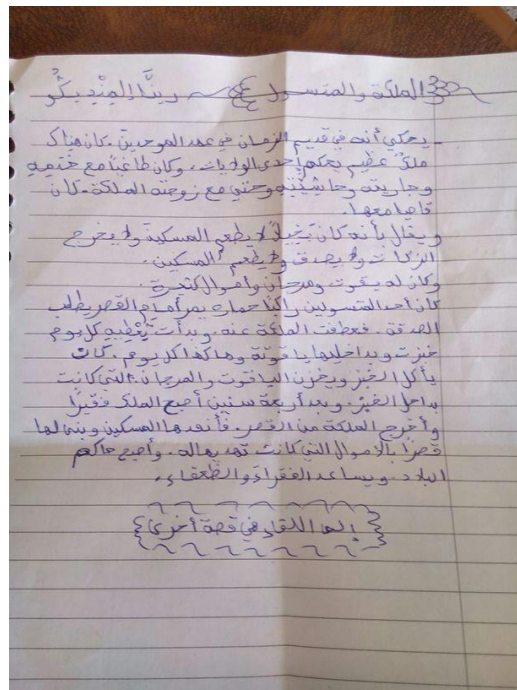 الملكة والمتسول
يحكي أنه في قديم الزمان في عهد الموحدين. كان هناك
ملكٌ عظيم يحكم إحدى الولايات، وكان طاغيا مع خدمه
وجاريته وحاشيته وحتي مع زوجته الملكة. كان
قاصا معها.
ويقال بأنه كان بخيلاً لا يطعم المسكين ولا يخرج
الزكات ولا يصدق ولا يطعم المسكين.
وكان له يقوت ومرجان وأموال كتيرة.
كان أحد المتسولين راكبا حماره يمر أمام القصر يطلب
الصدقة. فعطفت الملكة عنه. وبدأت تعْطِيهِ كل يوم
خبزت وبداخليها ياقوتة وها كدا كل يوم. كان
يأكل الخبز ويخزن الياقوت والمرجان. التي كانت
بداخل الخبز. وبعد أربعة سنين أصبح الملك فقيرًا
وأخرج الملكة من القصر. فأنقدها المسكين وبنى لها
قصرًا بالأموال التي كانت تهديها له. وأصبح حاكم
البلاد. ويساعد الفقراء والظعفاء.
إلى اللقاء في قصة أخرى